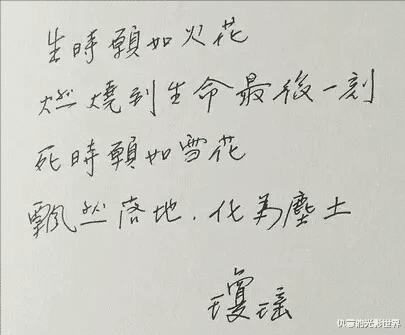 生時願如火花
燃燒到生命最後一刻
死時願如雪花
飄然落地．化為塵土
瓊瑤
仇富的光影世界